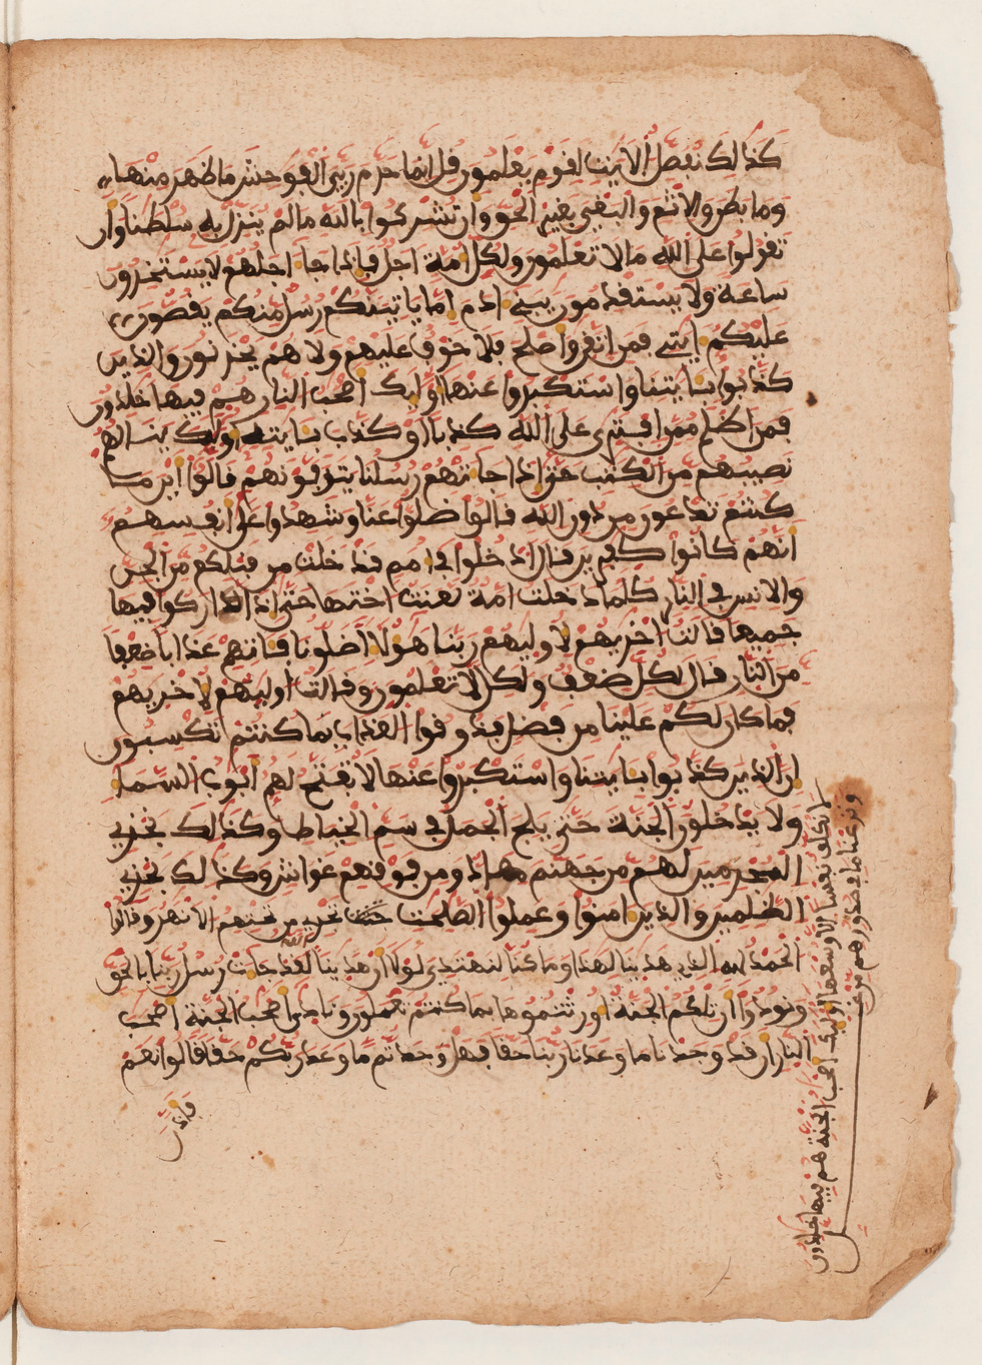 كذلك نفصل الايت لقوم يعلمون قل انما حرم ربي الفوحش ما ظهر منها
وما بطن والاثم والبغي بغير الحق وان تشركوا بالله ما لم ينزل به سلطنا وان
تقولوا على الله ما لا تعلمون ولكل امة اجل فاذا جا اجلهم لا يستخرون
ساعة ولا يستقدمون يبني ادم اما ياتينكم رسل منكم يقصون
عليكم ايتي فمن اتقى واصلح فلا خوف عليهم ولا هم يحزنون والذين
كذبوا بايتنا واستكبروا عنها اوليك اصحب النار هم فيها خلدون
فمن اظلم ممن افترى على الله كذبا او كذب بايته اوليك ينالهم
نصيبهم من الكتب حتى اذا جاتهم رسلنا يتوفونهم قالوا اين ما
كنتم تدعون من دون الله قالوا ضلوا عنا وشهدوا على انفسهم
انهم كانوا كفرين قال ادخلوا في امم قد خلت من قبلكم من الجن
والانس في النار كلما دخلت امة لعنت اختها حتى اذا اداركوا فيها
جميعا قالت اخريهم لاوليهم ربنا هولا اضلونا فاتهم عذابا ضعفا
من النار قال لكل ضعف ولكن لا تعلمون وقالت اوليهم لاخريهم
فما كان لكم علينا من فضل فذوقوا العذاب بما كنتم تكسبون
ان الذين كذبوا بايتنا واستكبروا عنها لا تفتح لهم ابوب السما
ولا يدخلون الجنة حتى يلج الجمل في سم الخياط وكذلك نجزي
المجرمين لهم من جهنم مهاد ومن فوقهم غواش وكذلك نجزي
الظلمين والذين امنوا وعملوا الصلحت تجري من تحتهم الانهر وقالوا
الحمد لله الذي هدينا لهذا وما كنا لنهتدي لولا ان هدينا الله لقد جات رسل ربنا بالحق
ونودوا ان تلكم الجنة اورثتموها بما كنتم تعملون ونادى اصحب الجنة اصحب
النار ان قد وجدنا ما وعدنا ربنا حقا فهل وجدتم ما وعد ربكم حقا قالوا نعم
فاذن
لا نكلف نفسا الا وسعها اوليك اصحب الجنة هم فيها خلدون
ونزعنا ما في صدورهم من غل